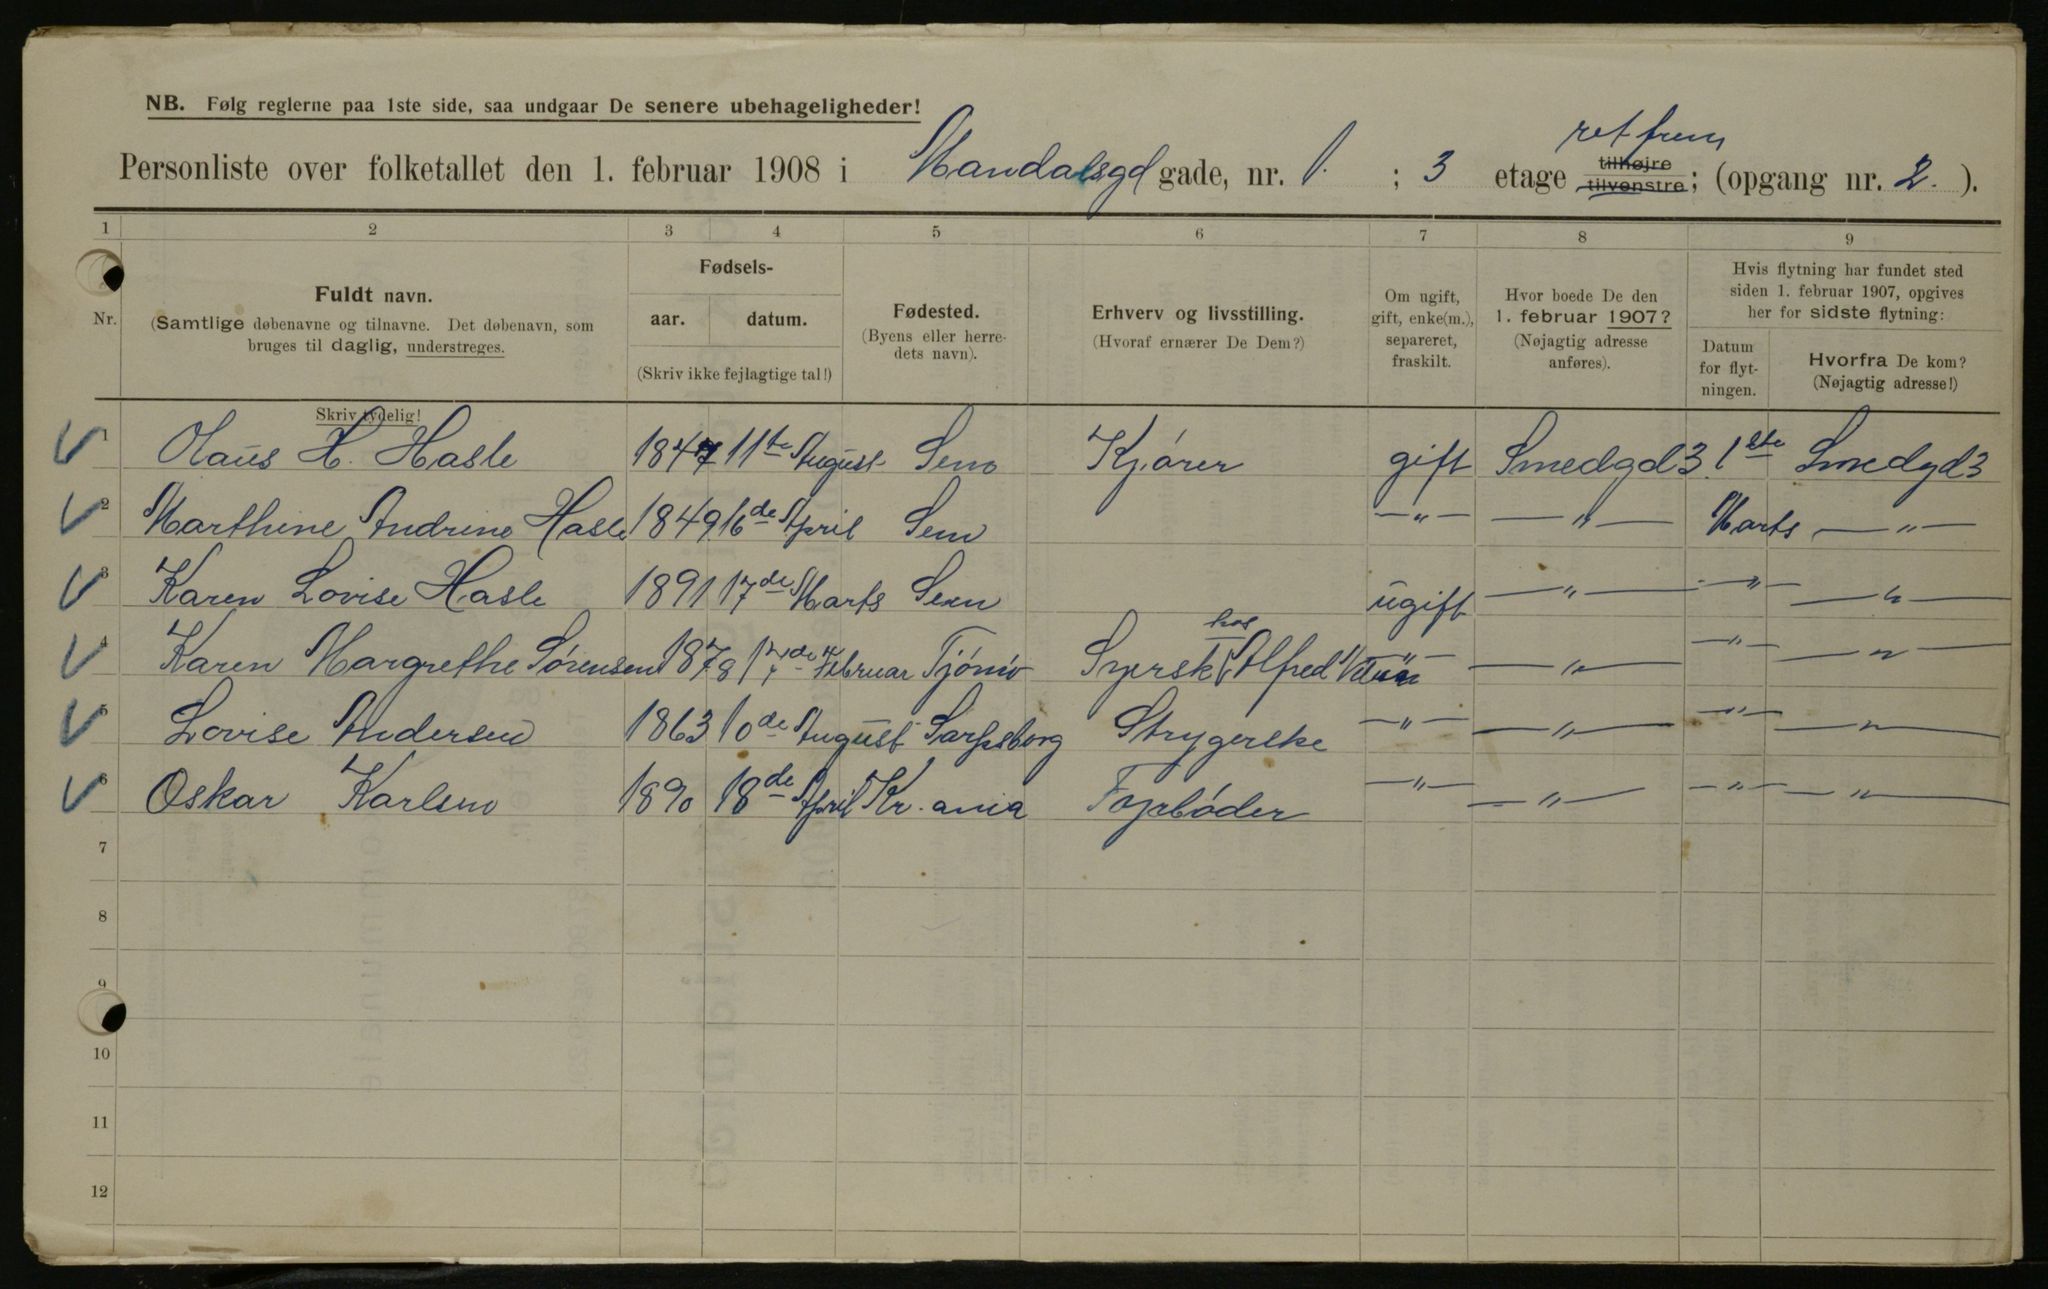 NB. Følg reglerne paa 1ste side, saa undgaar De senere ubehageligheder!
ret frem
Personliste over folketallet den 1. februar 1908 i Mandalsgd gade, nr. 1. ; 3 etage tilhøjre tilvenstre; (opgang nr. 2. ).
1 2 3 4 5 6 7 8 9
Nr.
Fuldt navn.
(Samtlige døbenavne og tilnavne. Det døbenavn, som
bruges til daglig, understreges.
Skriv tydelig!
Fødsels-
aar. datum.
(Skriv ikke fejlagtige tal!)
Fødested.
(Byens eller herre-
dets navn).
Erhverv og livsstilling.
(Hvoraf ernærer De Dem?)
Om ugift,
gift, enke(m.),
separeret,
fraskilt.
Hvor boede De den
1. februar 1907?
(Nøjagtig adresse
anføres).
Hvis flytning har fundet sted
siden 1. februar 1907, opgives
her for sidste flytning:
Datum
for flyt-
ningen.
Hvorfra De kom?
(Nøjagtig adresse!)
1 Olaus H. Hasle 1847 11te August Sem Kjører gift Smedgd 3. 1ste Smedgd 3
2 Marthine Andrine Hasle 1849 16de April Sem —"— —"— Marts —"—
3 Karen Lovise Hasle 1891 17de Marts Sem ugift —"— —"— —"—
4 Karen Margrethe Sørensen 1878 17de Februar Tjömö Syersk hos Alfred —"— —"— —"— —"—
5 Lovise Andersen 1863 10de August Sarpsborg Strygerske —"— —"— —"— —"—
6 Oskar Karlsen 1890 18de April Kr.ania —"— —"— —"— —"—
7
8
9
10
11
12